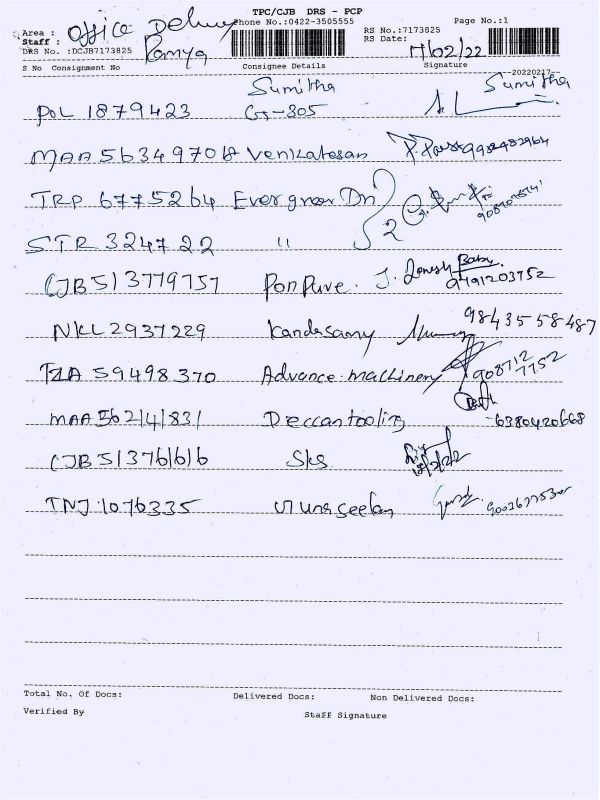 TPC/CJB DRS - PCP
Area : office Delivery Phone No.:0422-3505555 Page No.:1
Staff : Ramya RS No.:7173825
DRS No. :DCJB7173825 RS Date: 17/02/22
S No Consignment No Consignee Details Signature
--20220217--
POL 1879423 Sumitha G-305 Sumitha
MAA 563497068 Venkatesan 9984482964
TRP 6775264 Evergreen Dn
STR 3247722 " 2
CJB 513779757 Ponpure. J. Baby 9491203752
NKL 2937229 Kandasamy 9843558487
TZA 59498370 Advance machinery 908712 7752
MAA 562141831 Deccan tooling 6380420668
CJB 513761616 SKS
TNJ 1076335 Gunaseelan
Total No. Of Docs: Delivered Docs: Non Delivered Docs:
Verified By Staff Signature